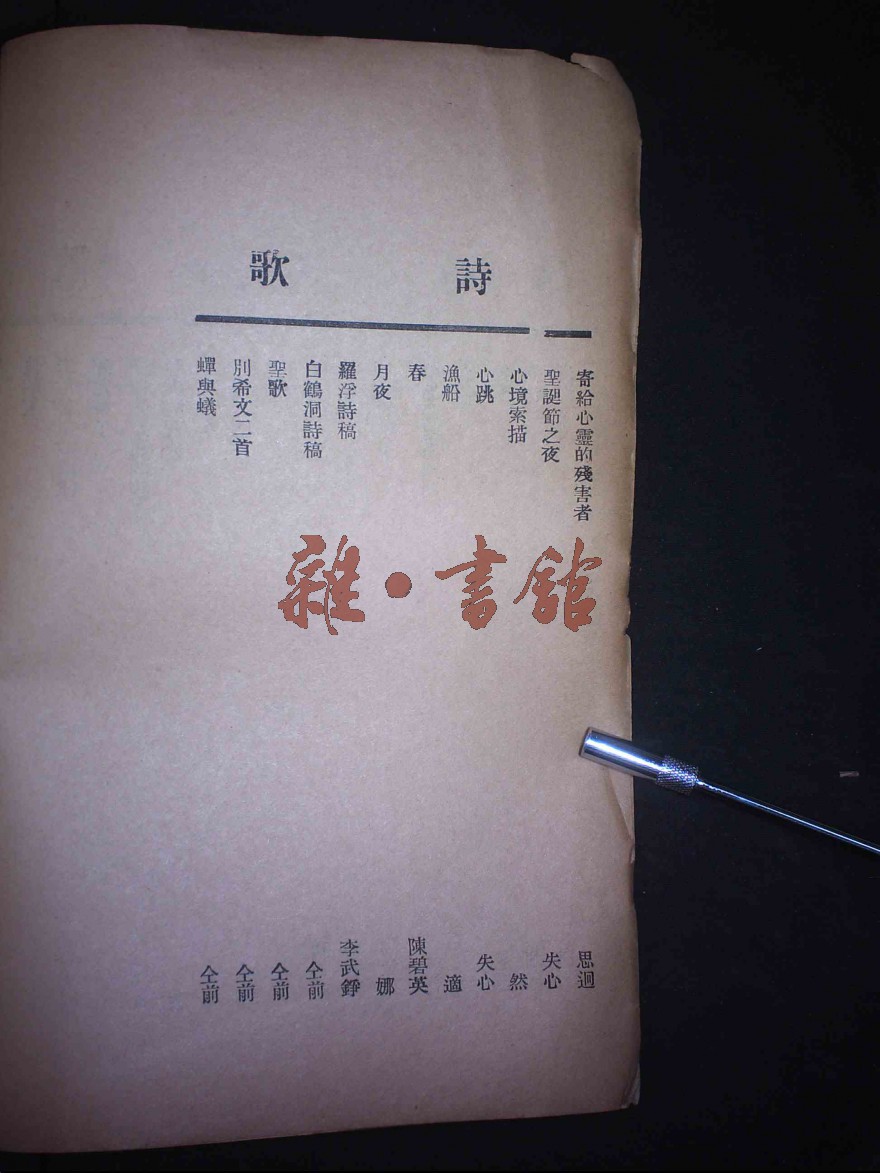 詩歌
寄給心靈的殘害者 思迴
聖誕節之夜 失心
心境索描 然
心跳 失心
漁船 適
春 陳碧英
月夜 娜
羅浮詩稿 李武錚
白鶴洞詩稿 仝前
聖歌 仝前
別希文二首 仝前
蟬與蟻 仝前
雜·書館